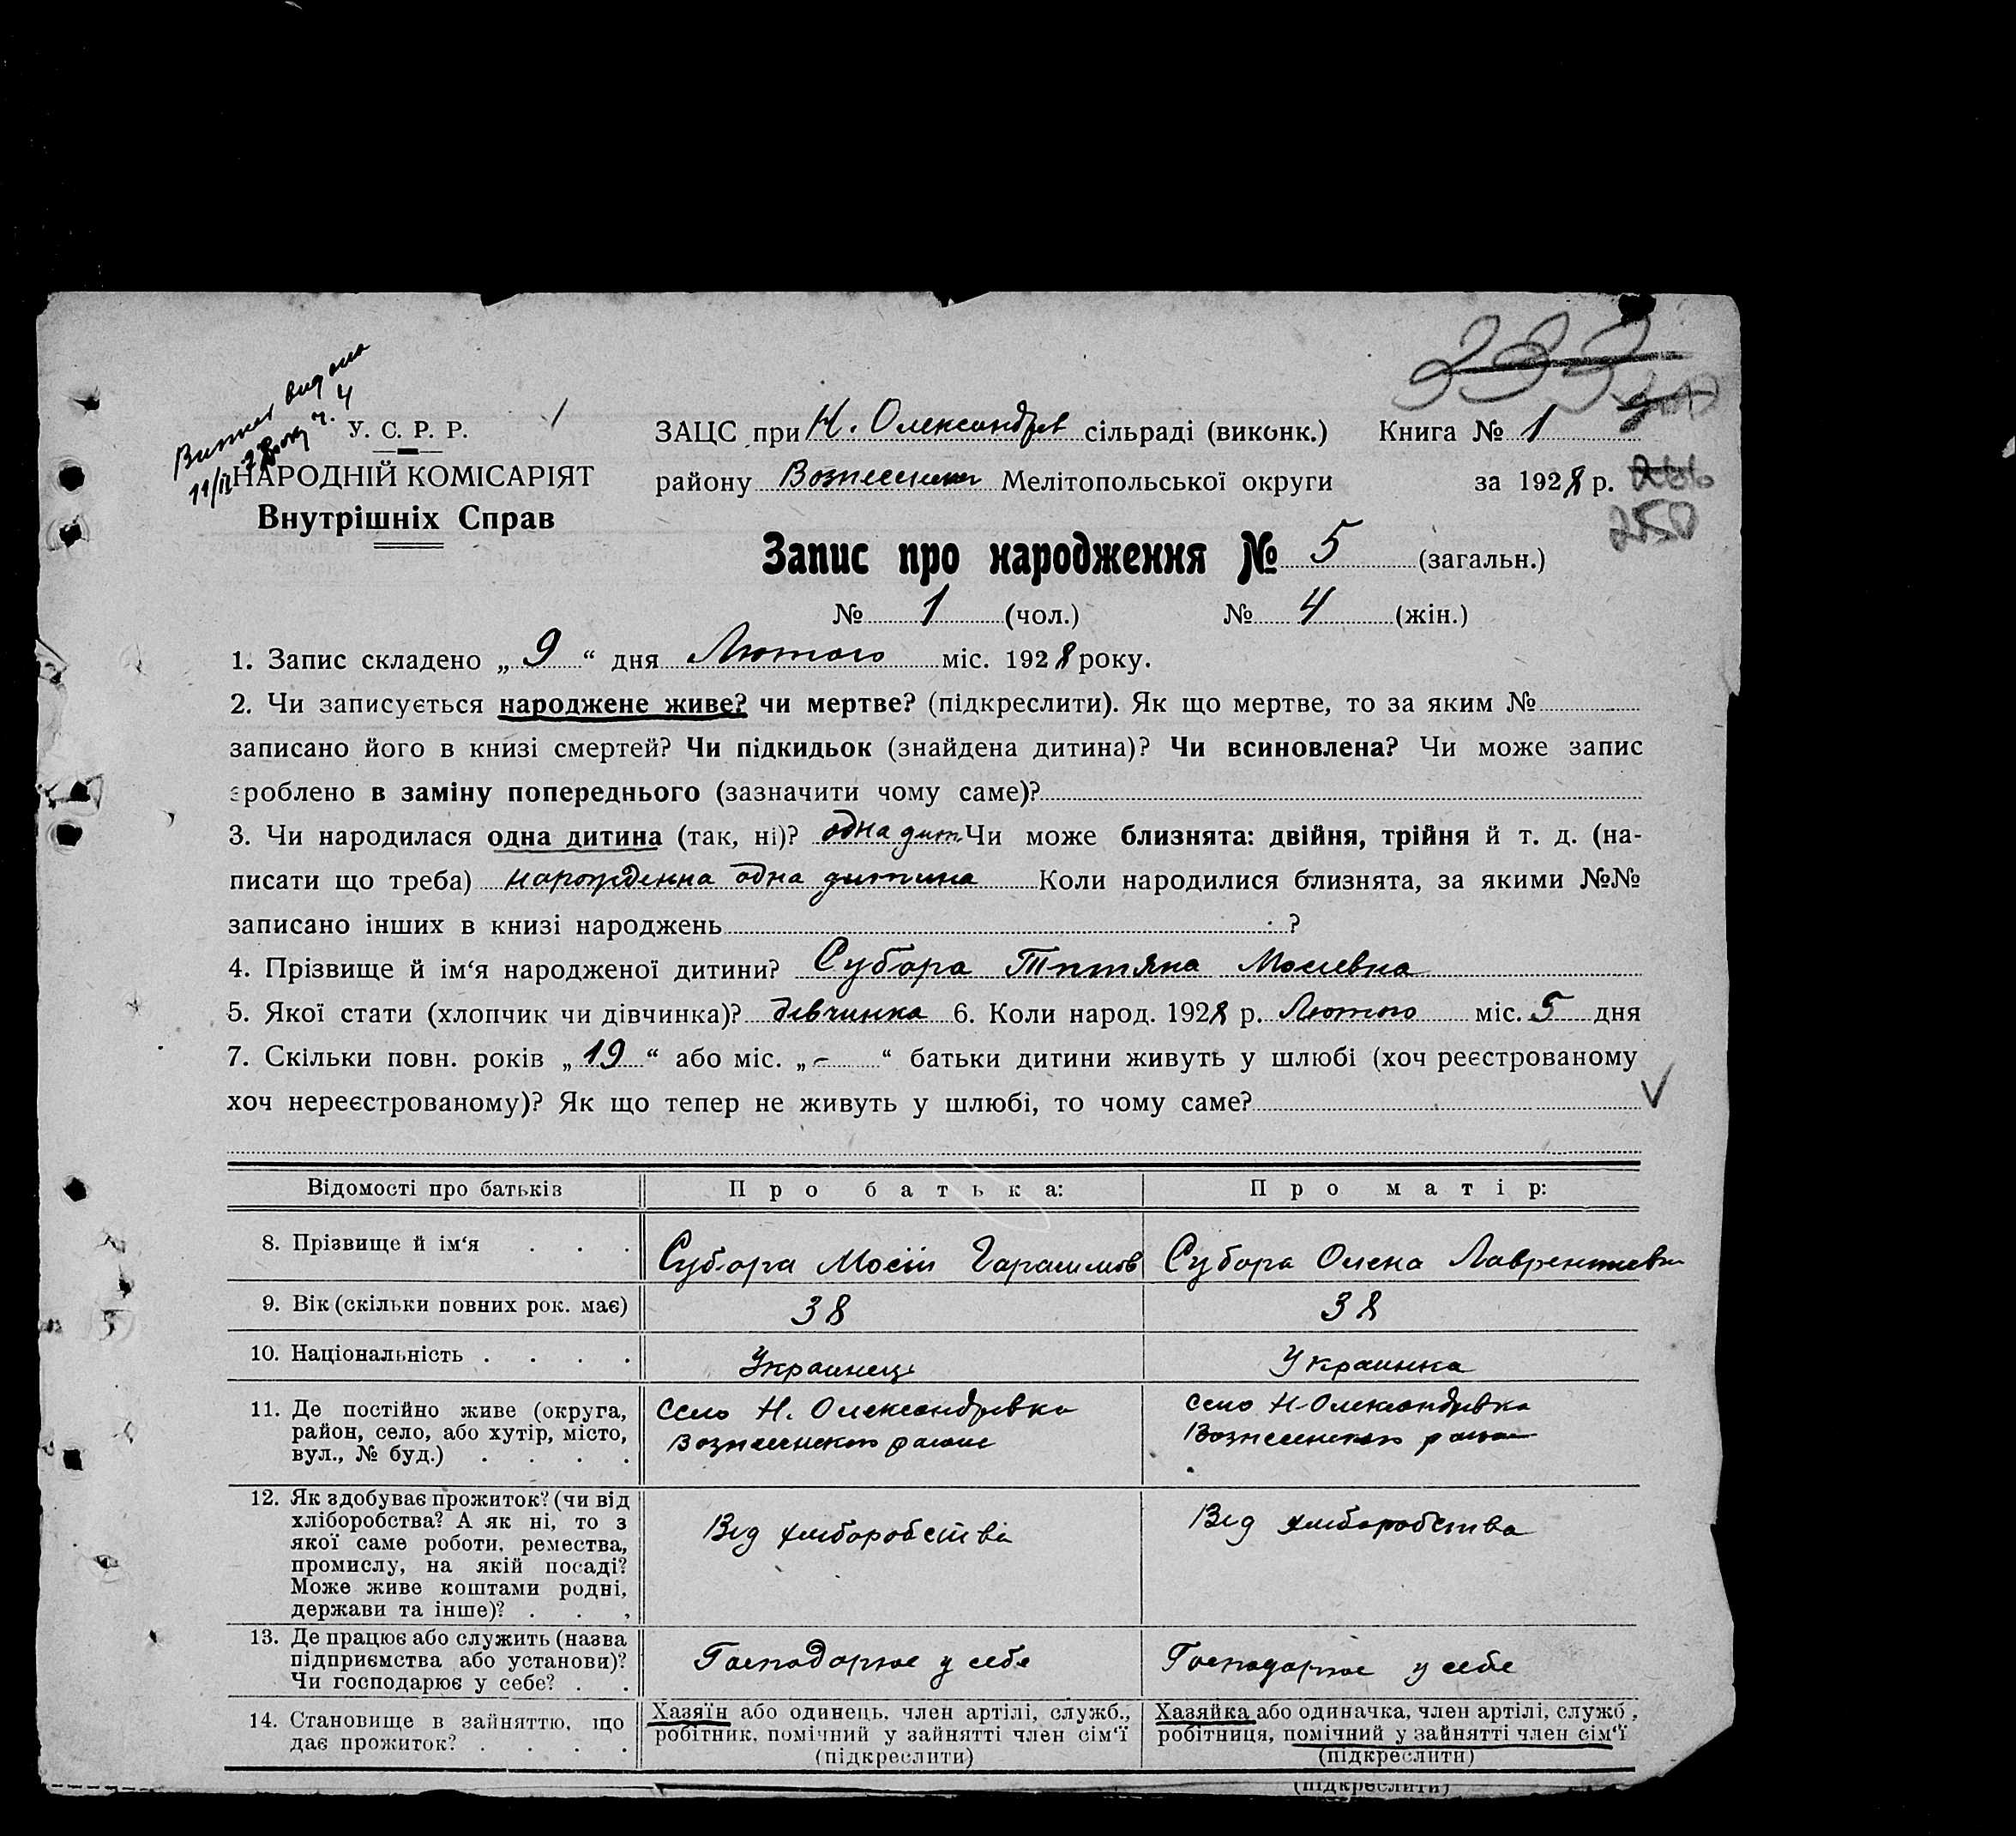 Виписка видана
11/II 28 року ч. 4
У. С. Р. Р.
НАРОДНІЙ КОМІСАРІЯТ
Внутрішніх Справ
333
ЗАЦС при Н. Олександрів сільраді (виконк.) Книга № 1
району Вознесенськ Мелітопольської округи за 1928 р.
250
Запис про народження № 5 (загальн.)
№ 1 (чол.) № 4 (жін.)
1. Запис складено „ 9 “ дня Лютого міс. 1928 року.
2. Чи записується народжене живе? чи мертве? (підкреслити). Як що мертве, то за яким №
записано його в книзі смертей? Чи підкидьок (знайдена дитина)? Чи всиновлена? Чи може запис
зроблено в заміну попереднього (зазначити чому саме)?
3. Чи народилася одна дитина (так, ні)? одна дит. Чи може близнята: двійня, трійня й т. д. (на-
писати що треба) нарожденна одна дитина Коли народилися близнята, за якими №№
записано інших в книзі народжень ?
4. Прізвище й ім‘я народженої дитини? Субора Титяна Мосіевна
5. Якої стати (хлопчик чи дівчинка)? дівчинка 6. Коли народ. 1928 р. Лютого міс. 5 дня
7. Скільки повн. років „ 19 “ або міс. „ - “ батьки дитини живуть у шлюбі (хоч реєстрованому
хоч нереєстрованому)? Як що тепер не живуть у шлюбі, то чому саме?
Відомості про батьків Про батька: Про матір:
8. Прізвище й ім‘я . . . Субора Мосій Гарасимов Субора Олена Лаврентиевн
9. Вік (скільки повних рок. має) 38 38
10. Національність . . . . Украинець Украинка
11. Де постійно живе (округа,
район, село, або хутір, місто,
вул., № буд.) . . . .
село Н. Олександрівка
Вознесенского району
село Н-Олександрівка
Вознесенского району
12. Як здобуває прожиток? (чи від
хліборобства? А як ні, то з
якої саме роботи, ремества,
промислу, на якій посаді?
Може живе коштами родні,
держави та інше)? . . .
Від хліборобства
Від хліборобства
13. Де працює або служить (назва
підприємства або установи)?
Чи господарює у себе? . .
Господарює у себе
Господарює у себе
14. Становище в зайняттю, що
дає прожиток? . . . .
Хазяїн або одинець, член артілі, служб.,
робітник, помічний у зайнятті член сім‘ї
(підкреслити)
Хазяйка або одиначка, член артілі, служб.,
робітниця, помічний у зайнятті член сім‘ї
(підкреслити)
(підкреслити)